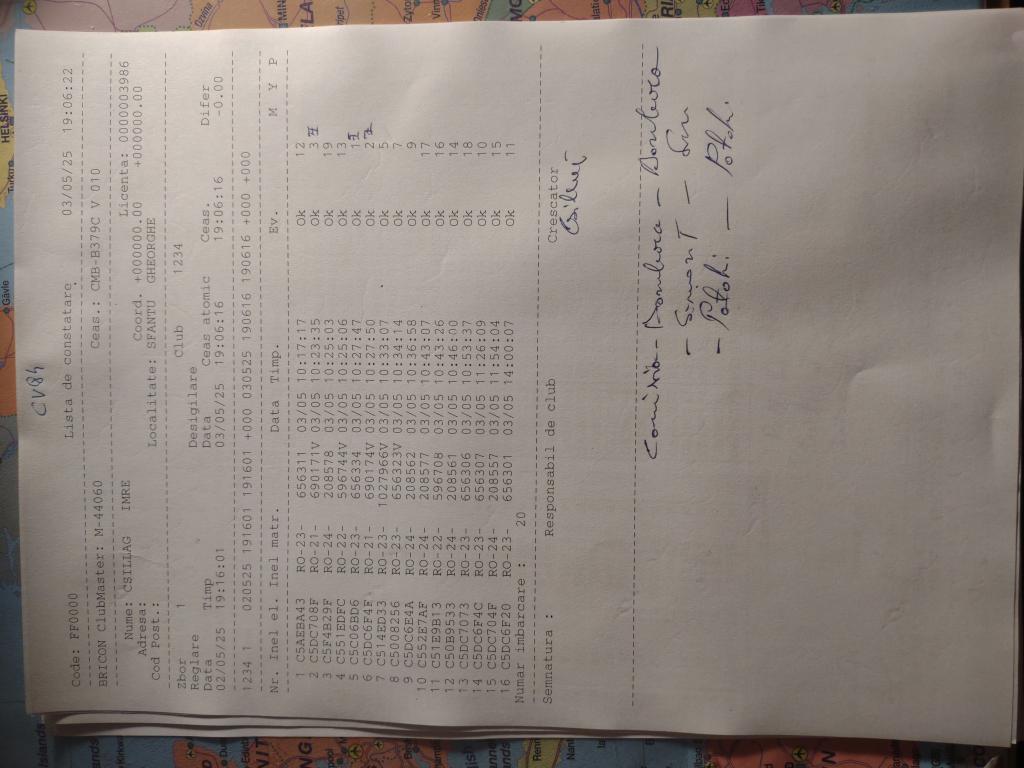 CV84
Code: FF0000 Lista de constatare 03/05/25 19:06:22
BRICON ClubMaster: M-44060 Ceas.: CMB-B379C V 010
Nume: CSILLAG IMRE Licenta: 00000003986
Adresa: Coord. +000000.00 +000000.00
Cod Post.: Localitate: SFANTU GHEORGHE
Zbor 1 Club 1234
Reglare Desigilare
Data Timp Data Ceas atomic Ceas. Difer
02/05/25 19:16:01 03/05/25 19:06:16 19:06:16 -0.00
1234 1 020525 191601 191601 +000 030525 190616 190616 +000 +000
Nr. Inel el. Inel matr. Data Timp. Ev. M Y P
1 C5AEBA43 RO-23- 656311 03/05 10:17:17 Ok 12
2 C5DC708F RO-21- 690171V 03/05 10:23:35 Ok 3
3 C5F4B29F RO-24- 208578 03/05 10:25:03 Ok 19
4 C551EDFC RO-22- 596744V 03/05 10:25:06 Ok 13
5 C5C06BD6 RO-23- 656334 03/05 10:27:47 Ok 1
6 C5DC6F4F RO-21- 690174V 03/05 10:27:50 Ok 2
7 C514ED33 RO-23- 1027966V 03/05 10:33:07 Ok 5
8 C5008256 RO-23- 656323V 03/05 10:34:14 Ok 7
9 C5DC6E4A RO-24- 208562 03/05 10:36:58 Ok 9
10 C552E7AF RO-24- 208577 03/05 10:43:07 Ok 17
11 C51E9B13 RO-22- 596708 03/05 10:43:26 Ok 16
12 C50B9533 RO-24- 208561 03/05 10:46:00 Ok 14
13 C5DC7073 RO-23- 656306 03/05 10:53:37 Ok 18
14 C5DC6F4C RO-23- 656307 03/05 11:26:09 Ok 10
15 C5DC704F RO-24- 208557 03/05 11:54:04 Ok 15
16 C5DC6F20 RO-23- 656301 03/05 14:00:07 Ok 11
Numar imbarcare : 20
Semnatura : Responsabil de club Crescator